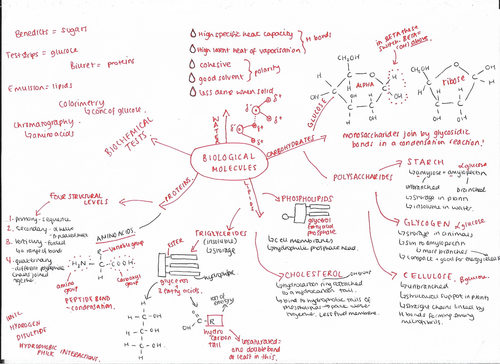 Benedicts = sugars
Test strips = glucose
Biuret = proteins
Emulsion = lipids
Colorimetry
↳ conc of glucose.
Chromatography
↳ amino acids
BIOCHEMICAL TESTS
High specific heat capacity
High latent heat of vaporisation
H bonds
cohesive
good solvent
polarity
less dense when solid
WATER
δ+
δ+
δ-
δ-
δ+
δ+
BIOLOGICAL
MOLECULES
CARBOHYDRATES
GLUCOSE
in BETA these
switch. BETA =
(OH) above.
CH₂OH
ALPHA
H
OH
RIBOSE
monosaccharides join by glycosidic
bonds in a condensation reaction!
POLYSACCHARIDES
STARCH
α glucose
↳ amylose + amylopectin
unbranched
branched
↳ storage in plants
↳ insoluble in water.
GLYCOGEN
α glucose
↳ storage in animals
↳ sim to amylopectin
more branches
↳ compact = good for energy release
CELLULOSE
β glucose
↳ unbranched
↳ structural support in plants
↳ straight chains linked by
H bonds forming
microfibrils.
PROTEINS
FOUR STRUCTURAL
LEVELS
1. primary - sequence
2. secondary - α helix
β pleated sheet
3. tertiary - folded
4. quaternary
- different polypeptide
chains joined
together
AMINO ACIDS
R
variable group
H₂N
C
COOH
H
amino
group
carboxyl
group
PEPTIDE BOND
- CONDENSATION.
IONIC
HYDROGEN
DISULFIDE
HYDROPHOBIC
PHILIC INTERACTIONS.
LIPIDS
TRIGLYCERIDES
(insoluble)
↳ storage
ESTER
glycerol
3 fatty acids.
hydrophobic
H
H - C - OH
H - C - OH
H - C - OH
H
lots of energy
O
C
OH
R
hydro
carbon
tail
unsaturated =
one double bond
at least in this.
PHOSPHOLIPIDS
glycerol
fatty acid
phosphate
↳ cell membranes
↳ hydrophilic phosphate head.
CHOLESTEROL
↳ hydrocarbon ring attached
to a hydrocarbon tail.
↳ bind to hydrophobic tails of
phospholipids
together. Less fluid membrane.